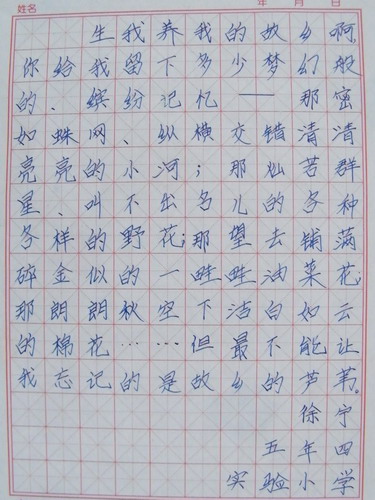 姓名 年 月 日
生我养我的故乡啊,
你给我留下多少梦幻般
的、缤纷记忆——那密
如蛛网、纵横交错清清
亮亮的小河;那灿若群
星、叫不出名儿的各种
各样的野花;那望去铺满
碎金似的一畦畦油菜花;
那朗朗秋空下洁白如云
的棉花……但最不能让
我忘记的是故乡的芦苇。
徐宁
五年四
实验小学